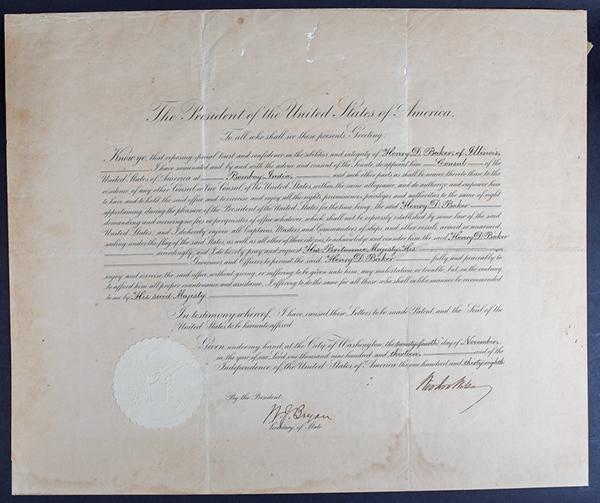 The President of the United States of America.
To all who shall see these presents, Greeting:
Know ye, that reposing special trust and confidence in the abilities and integrity of Henry D. Baker, of Illinois,
I have nominated and, by and with the advice and consent of the Senate, do appoint him Consul of the
United States of America at Bombay, India, and such other parts as shall be nearer thereto than to the
residence of any other Consul or Vice Consul of the United States, within the same allegiance, and do authorize and empower him
to have and to hold the said office and to exercise and enjoy all the rights, preeminences, privileges and authorities to the same of right
appertaining, during the pleasure of the President of the United States for the time being, the said Henry D. Baker
demanding and receiving no fees or perquisites of office whatever, which shall not be expressly established by some law of the said
United States: and I do hereby enjoin all Captains, Masters and Commanders of ships and other vessels, armed or unarmed,
sailing under the flag of the said States, as well as all other of their citizens, to acknowledge and consider him the said Henry D. Baker
accordingly, and I do hereby pray and request His Britannic Majesty, His
Governors and Officers to permit the said Henry D. Baker fully and peaceably to
enjoy and exercise the said office without giving, or suffering to be given unto him, any molestation or trouble, but, on the contrary
to afford him all proper countenance and assistance, I offering to do the same for all those who shall in like manner be recommended
to me by His said Majesty.
In testimony whereof, I have caused these Letters to be made Patent, and the Seal of the
United States to be hereunto affixed.
Given under my hand, at the City of Washington, the twenty-fourth day of November,
in the year of our Lord one thousand nine hundred and thirteen, and of the
Independence of the United States of America, the one hundred and thirty-eighth.
Woodrow Wilson
By the President:
W. J. Bryan
Secretary of State.